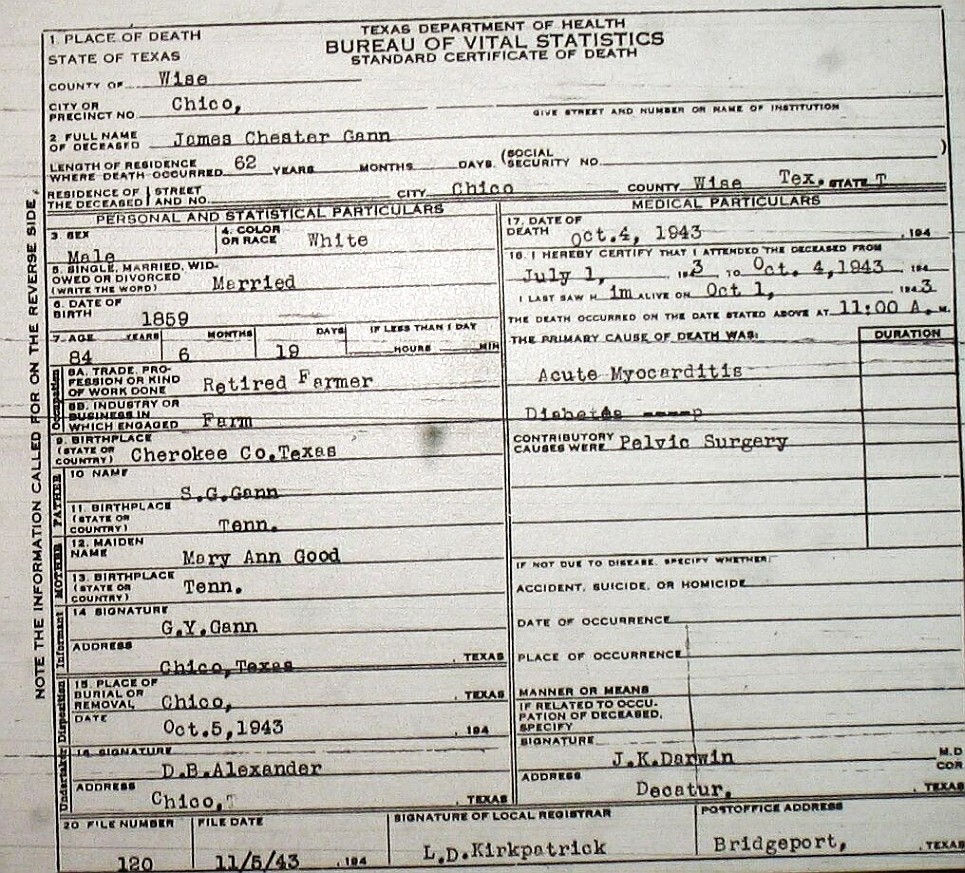 TEXAS DEPARTMENT OF HEALTH
BUREAU OF VITAL STATISTICS
STANDARD CERTIFICATE OF DEATH
1. PLACE OF DEATH
STATE OF TEXAS
COUNTY OF Wise
CITY OR PRECINCT NO. Chico,
GIVE STREET AND NUMBER OR NAME OF INSTITUTION
2. FULL NAME OF DECEASED James Chester Gann
LENGTH OF RESIDENCE WHERE DEATH OCCURRED 62 YEARS MONTHS DAYS. (SOCIAL SECURITY NO. )
RESIDENCE OF THE DECEASED STREET AND NO. CITY Chico COUNTY Wise Tex. STATE T
NOTE THE INFORMATION CALLED FOR ON THE REVERSE SIDE.
PERSONAL AND STATISTICAL PARTICULARS
3. SEX Male
4. COLOR OR RACE White
5. SINGLE, MARRIED, WIDOWED OR DIVORCED (WRITE THE WORD) Married
6. DATE OF BIRTH 1859
7. AGE YEARS MONTHS DAYS IF LESS THAN 1 DAY
84 6 19 HOURS MIN
Occupation
8A. TRADE, PROFESSION OR KIND OF WORK DONE Retired Farmer
8B. INDUSTRY OR BUSINESS IN WHICH ENGAGED Farm
9. BIRTHPLACE (STATE OR COUNTRY) Cherokee Co.Texas
FATHER
10 NAME S.G.Gann
11. BIRTHPLACE (STATE OR COUNTRY) Tenn.
MOTHER
12. MAIDEN NAME Mary Ann Good
13. BIRTHPLACE (STATE OR COUNTRY) Tenn.
Informant
14 SIGNATURE G.Y.Gann
ADDRESS Chico,Texas , TEXAS
Disposition
15. PLACE OF BURIAL OR REMOVAL Chico, , TEXAS
DATE Oct.5,1943 , 194
Undertaker
16. SIGNATURE D.B.Alexander
ADDRESS Chico,T , TEXAS
MEDICAL PARTICULARS
17. DATE OF DEATH Oct.4, 1943 , 194
18. I HEREBY CERTIFY THAT I ATTENDED THE DECEASED FROM
July 1, 193 TO Oct. 4,1943 , 194
I LAST SAW H im ALIVE ON Oct 1, 1943
THE DEATH OCCURRED ON THE DATE STATED ABOVE AT 11:00 A. M.
THE PRIMARY CAUSE OF DEATH WAS: DURATION
Acute Myocarditis
Diabetes ----p
CONTRIBUTORY CAUSES WERE Pelvic Surgery
IF NOT DUE TO DISEASE, SPECIFY WHETHER:
ACCIDENT, SUICIDE, OR HOMICIDE
DATE OF OCCURRENCE
PLACE OF OCCURRENCE
MANNER OR MEANS
IF RELATED TO OCCUPATION OF DECEASED, SPECIFY
SIGNATURE J.K.Darwin M.D COR
ADDRESS Decatur, , TEXAS
20 FILE NUMBER 120
FILE DATE 11/5/43 , 194
SIGNATURE OF LOCAL REGISTRAR L.D.Kirkpatrick
POSTOFFICE ADDRESS Bridgeport, , TEXAS